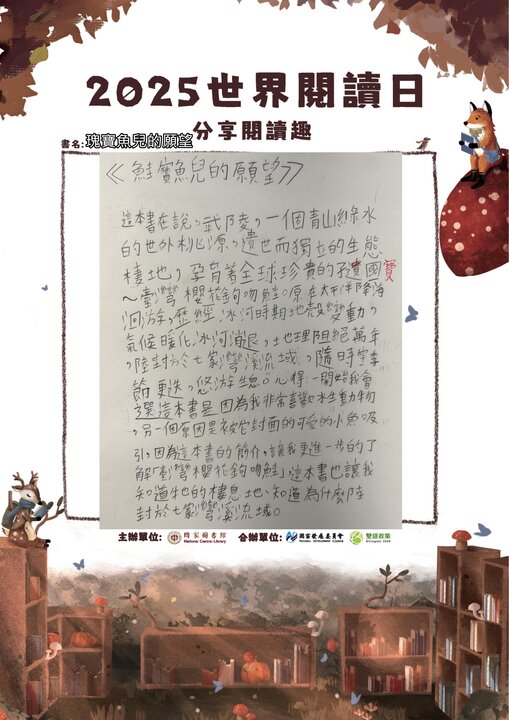 2025世界閱讀日
分享閱讀趣
書名:瑰寶魚兒的願望
《鮭寶魚兒的願望》
這本書在說,武陵,一個青山綠水
的世外桃源,遺世而獨立的生態
棲地,孕育著全球珍貴的孑遺國寶
~臺灣櫻花鉤吻鮭。原在太平洋降海
洄游,歷經冰河時期地殼變動,
氣候暖化冰河消退,土地理阻絕萬年
,陸封於七家灣溪流域,隨時空季
節更迭,悠游生息。心得:一開始我會
選這本書是因為我非常喜歡水生動物
,另一個原因是被它封面的可愛的小魚吸
引,因為這本書的簡介,讓我更進一步的了
解「臺灣櫻花鉤吻鮭」這本書也讓我
知道牠的棲息地、知道為什麼陸
封於七家灣溪流域。
主辦單位: 國家圖書館 National Central Library 合辦單位: 國家發展委員會 NATIONAL DEVELOPMENT COUNCIL 雙語政策 Bilingual 2030